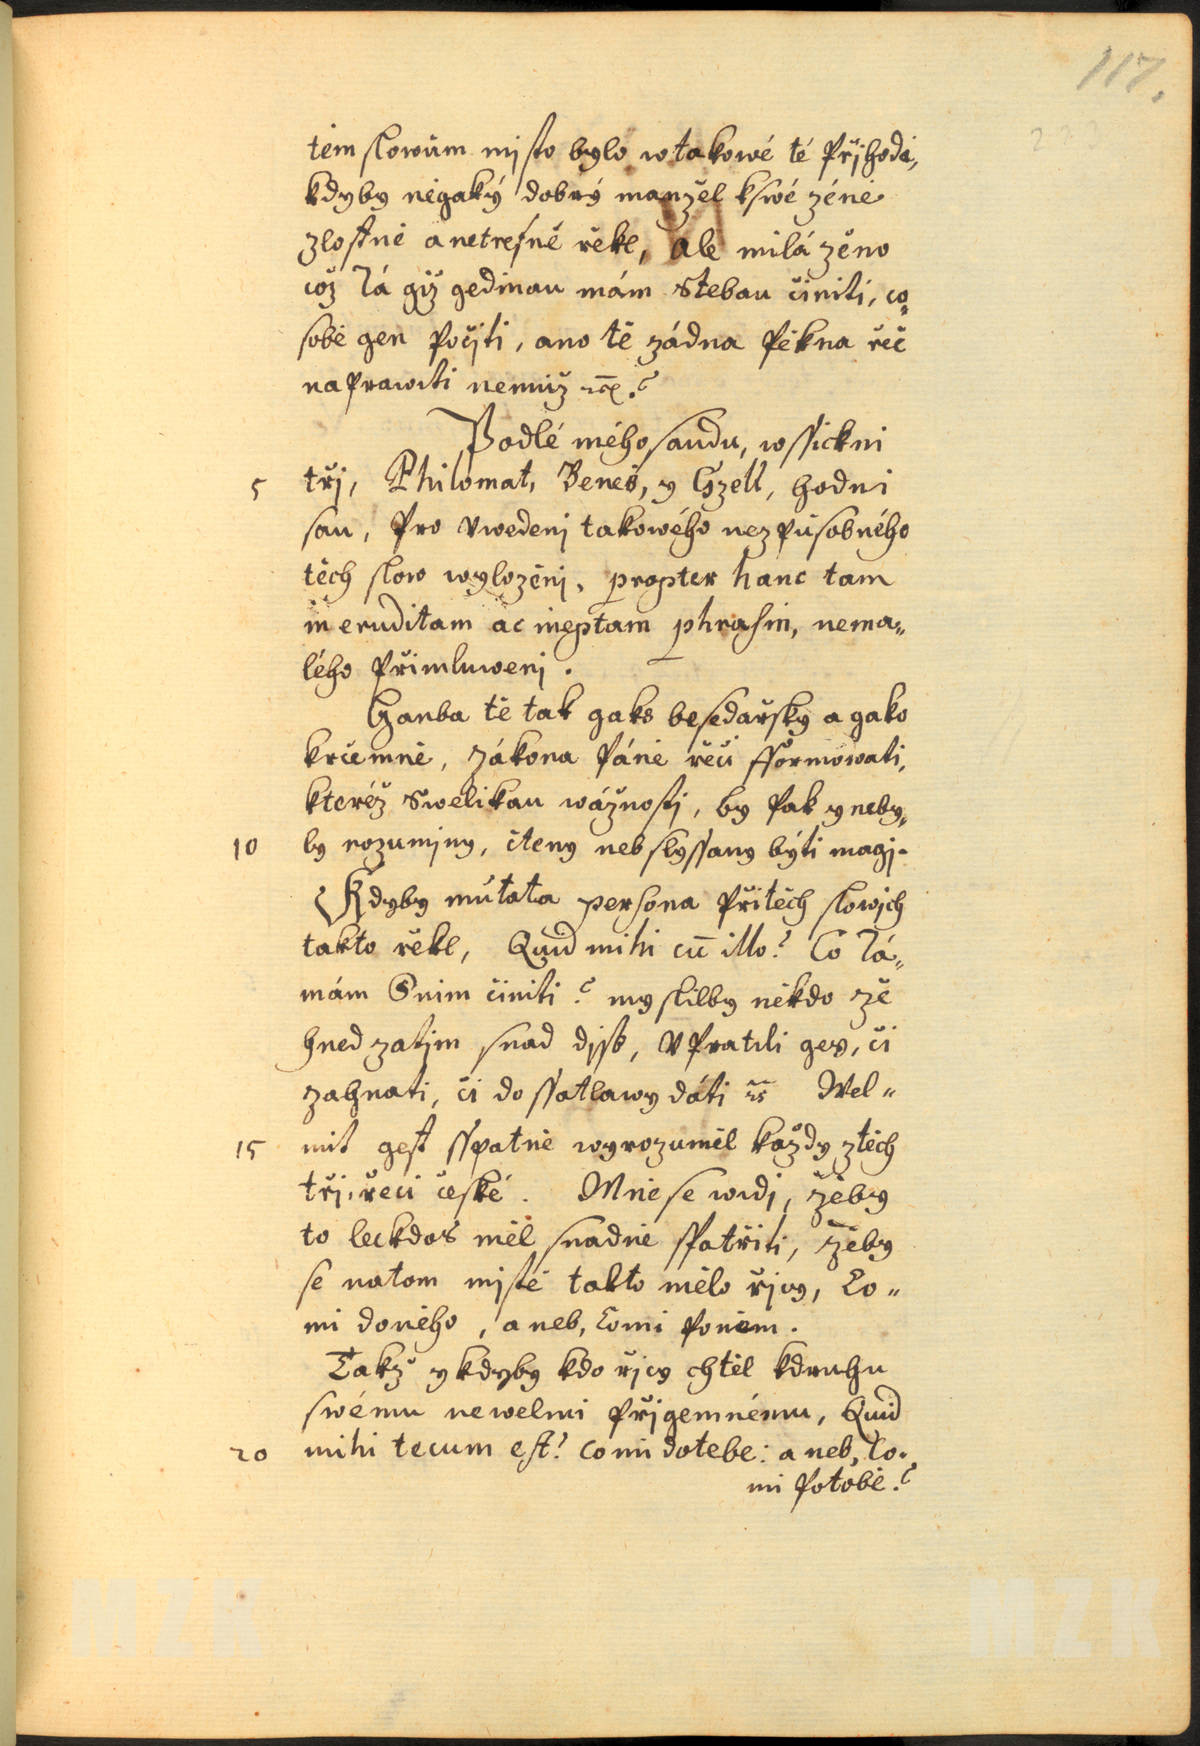 117.
tėm slowům mjsto bylo w takowé té přjhodě,
kdyby nėgaký dobrý manžel k swé ženė
zlostnė a netrefnė řekl, ale milá ženo
což Já giž gedinau mám s tebau činiti, co„
sobė gen počjti, ano tė žádna pėkna řeč
naprawiti nemůž ꝛc.?
Podlé mého saudu, wssickni
5 třj, Philomat, Beneš, y Gzell, hodni
sau, pro vwedenj takowého nezpůsobného
tėch slow wyloženj, propter hanc tam
ineruditam ac ineptam phrasin, nema„
lého přimluwenj.
Hanba tė tak gaks besedařsky a gako
krčemnė, zákona Pánė řeči fformowati,
kteréž s welikau wážnostj, by pak y neby„
10 ly rozumjny, čteny neb slyssany býti magj.
Kdyby mutata persona při tėch slowjch
takto řekl, Quid mihi cū illo? Co Já„
mám s nim činiti? myslilby nėkdo že
hned zatjm snad djsb, vpratili geg, či
zahnati, či do ssatlawy dáti ꝛc Wel„
15 mit gest sspatnė wyrozumėl každy z tėch
třj, řeči české. Mnė se widj, žeby
to leckdos mėl snadnė spatřiti, žeby
se na tom mjstė takto mėlo řjcy, Co„
mi do nėho, a neb, Co mi po nėm.
Takž y kdyby kdo řjcy chtėl k druhu
swému newelmi přjgemnému, Quid
20 mihi tecum est? co mi do tebe: a neb, Co„
mi po tobė?
MZK
MZK